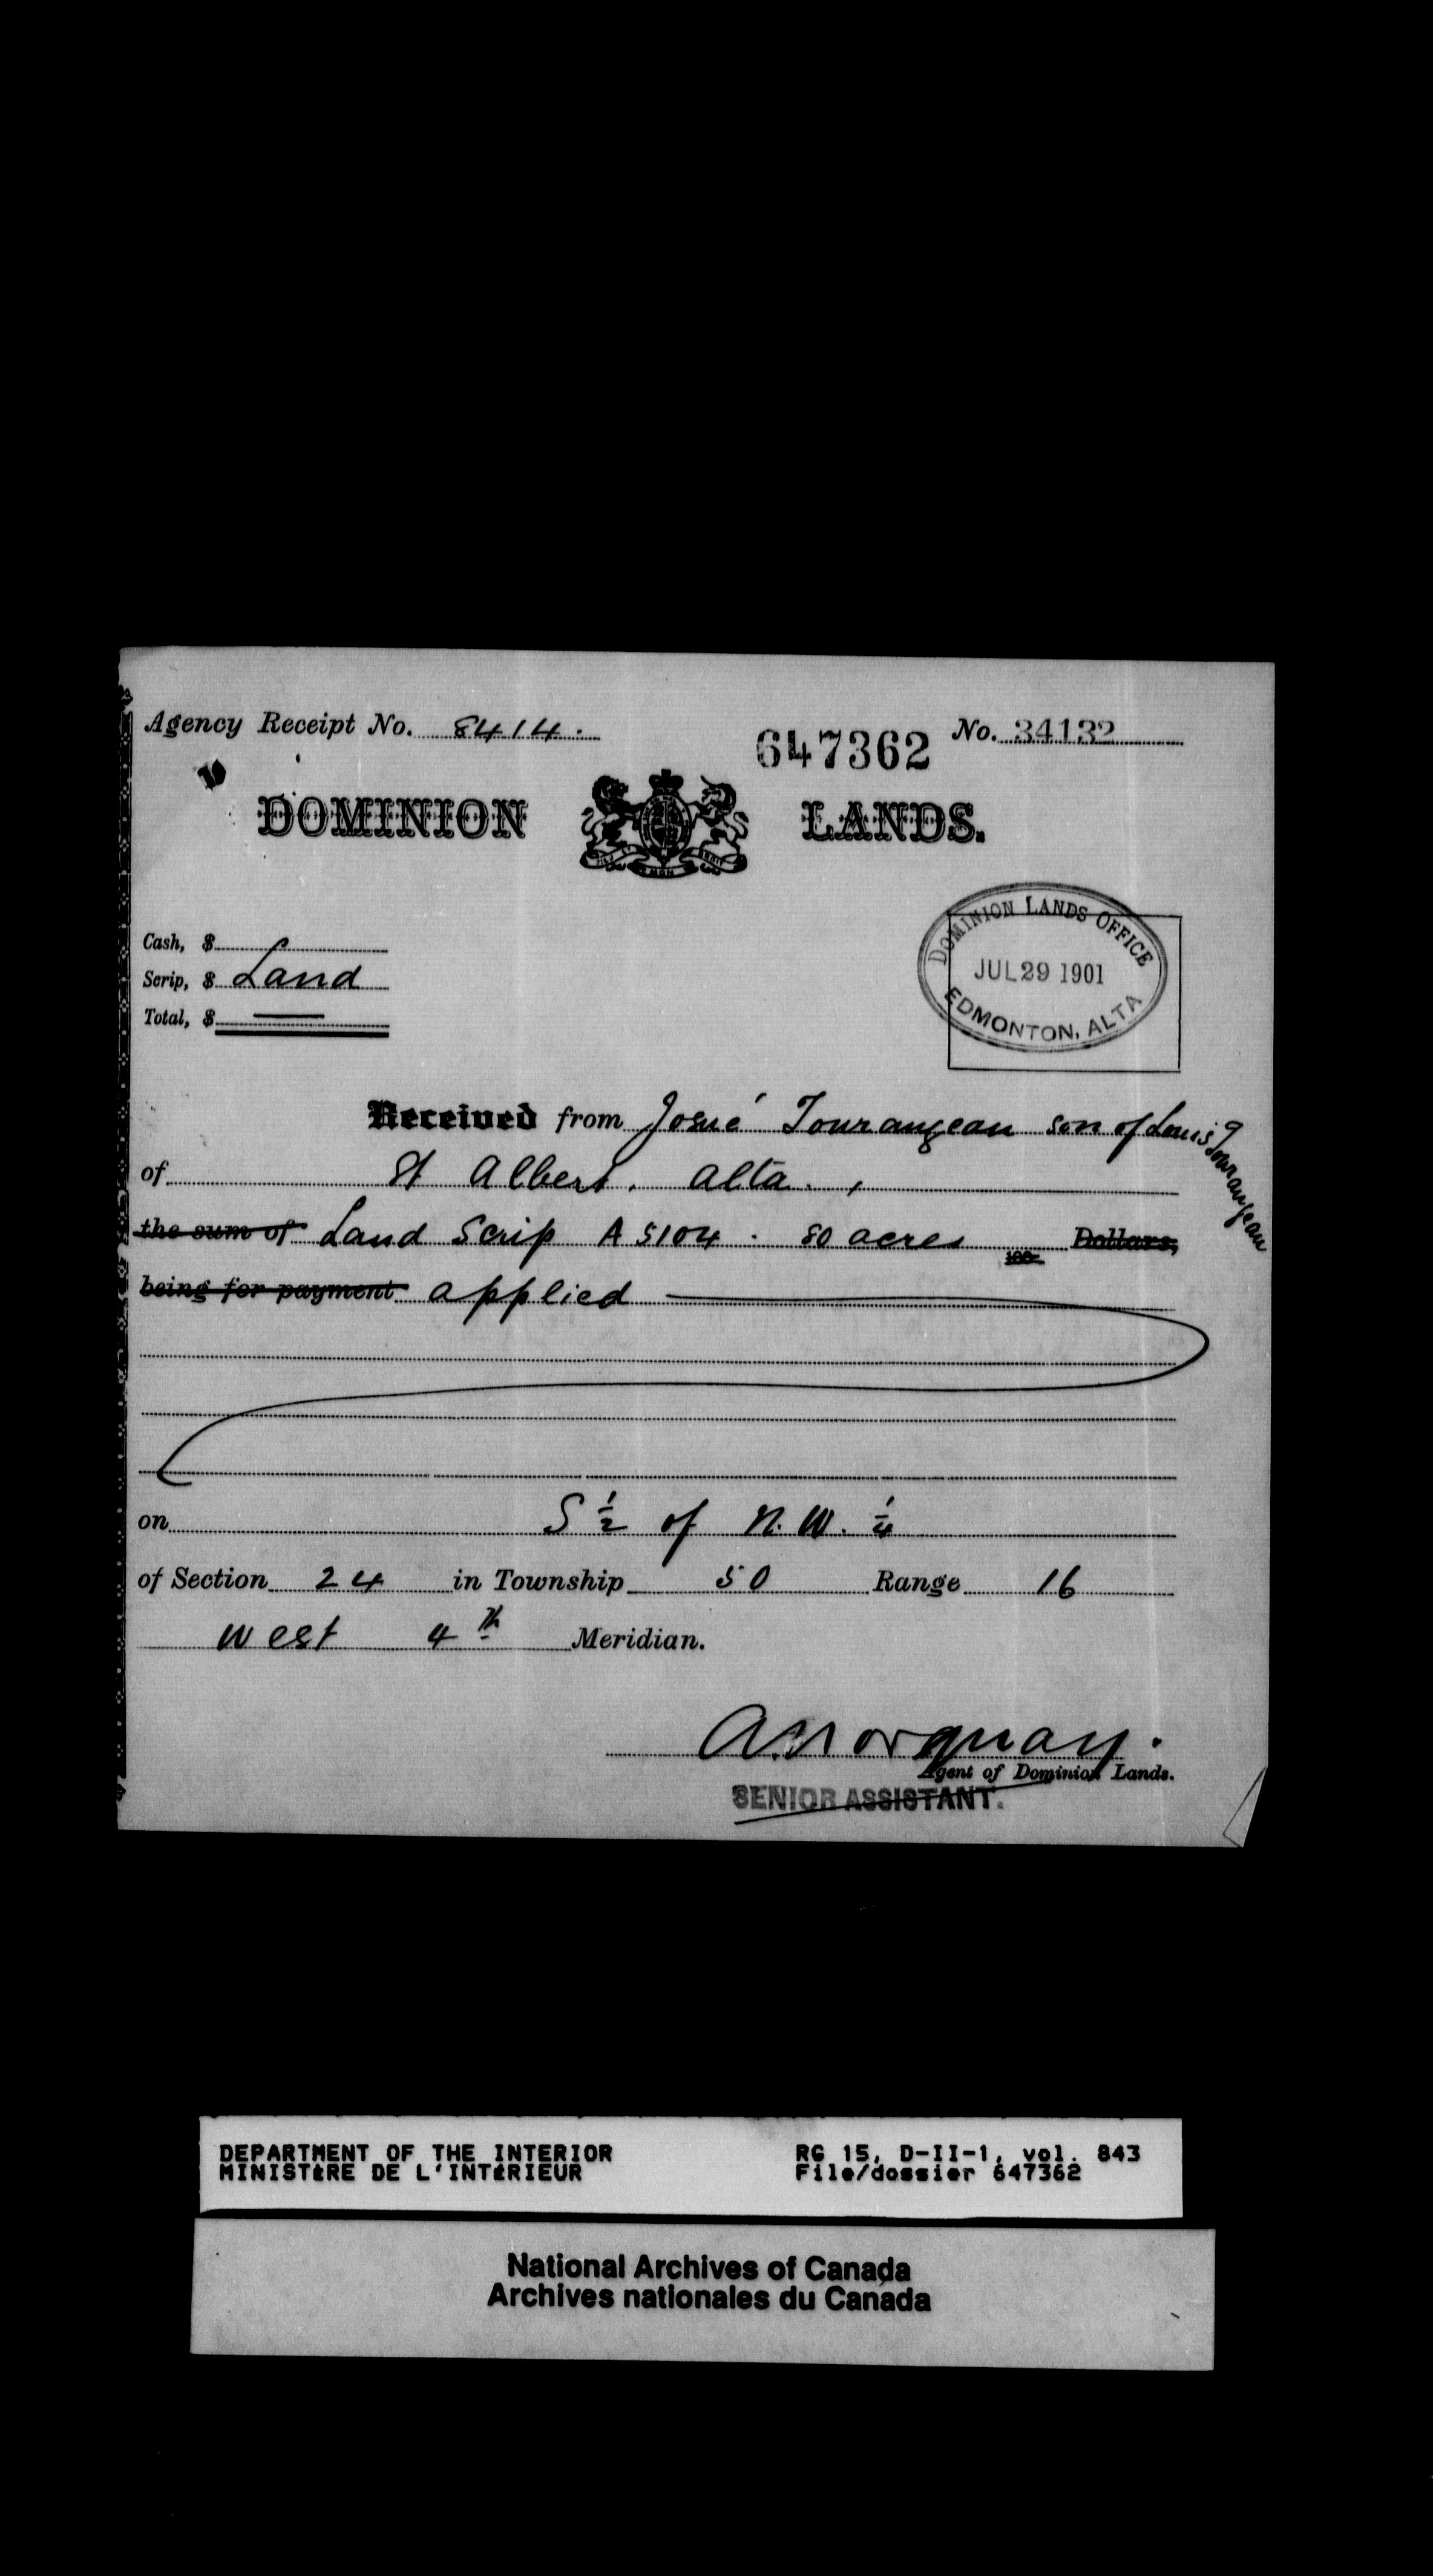 Agency Receipt No. 8414.
647362 No. 34132
DOMINION LANDS.
Cash, $
Scrip, $ Land
Total, $ —
DOMINION LANDS OFFICE
JUL 29 1901
EDMONTON, ALTA
Received from Josué Tourangeau son of Louis Tourangeau
of St Albert. Alta. ,
the sum of Land Scrip A 5104 . 80 acres 100 Dollars,
being for payment applied
on S 1/2 of N.W. 1/4
of Section 24 in Township 50 Range 16
west 4th Meridian.
A Norquay.
Agent of Dominion Lands.
SENIOR ASSISTANT.
DEPARTMENT OF THE INTERIOR RG 15, D-II-1, vol. 843
MINISTÈRE DE L'INTÉRIEUR File/dossier 647362
National Archives of Canada
Archives nationales du Canada